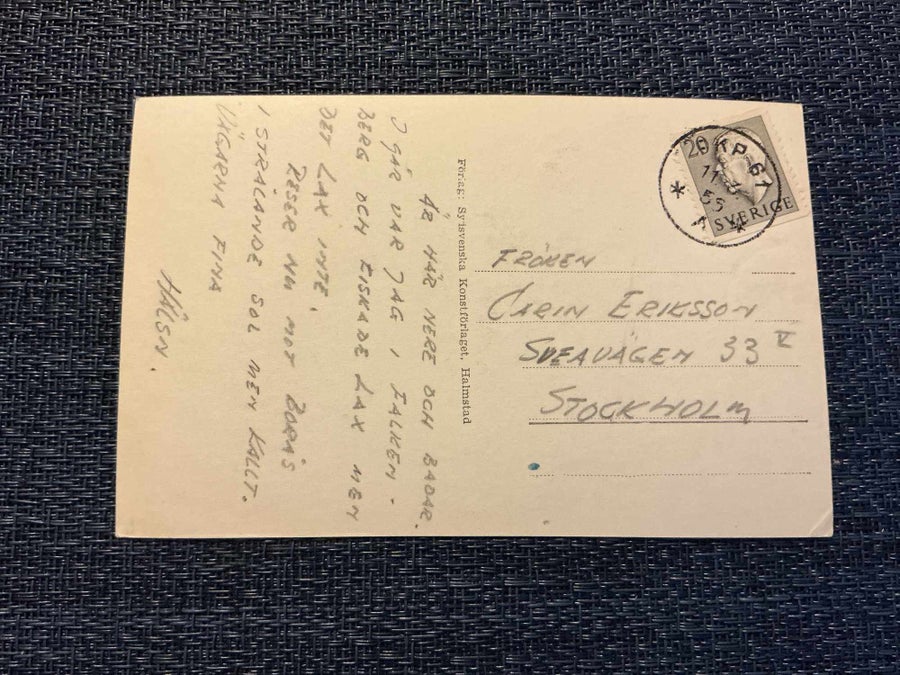 ÄR HÄR NERE OCH BADAR.
I GÅR VAR JAG I FALKEN-
BERG OCH FISKADE LAX MEN
DET LAX INTE
RESER NU MOT BORÅS
I STRÅLANDE SOL MEN KALLT.
VÄGARNA FINA
HÄLSN.
Förlag: Sydsvenska Konstförlaget, Halmstad
PKP 61
11
SVERIGE
FRÖKEN
CARIN ERIKSSON
SVEAVÄGEN 33 V
STOCKHOLM